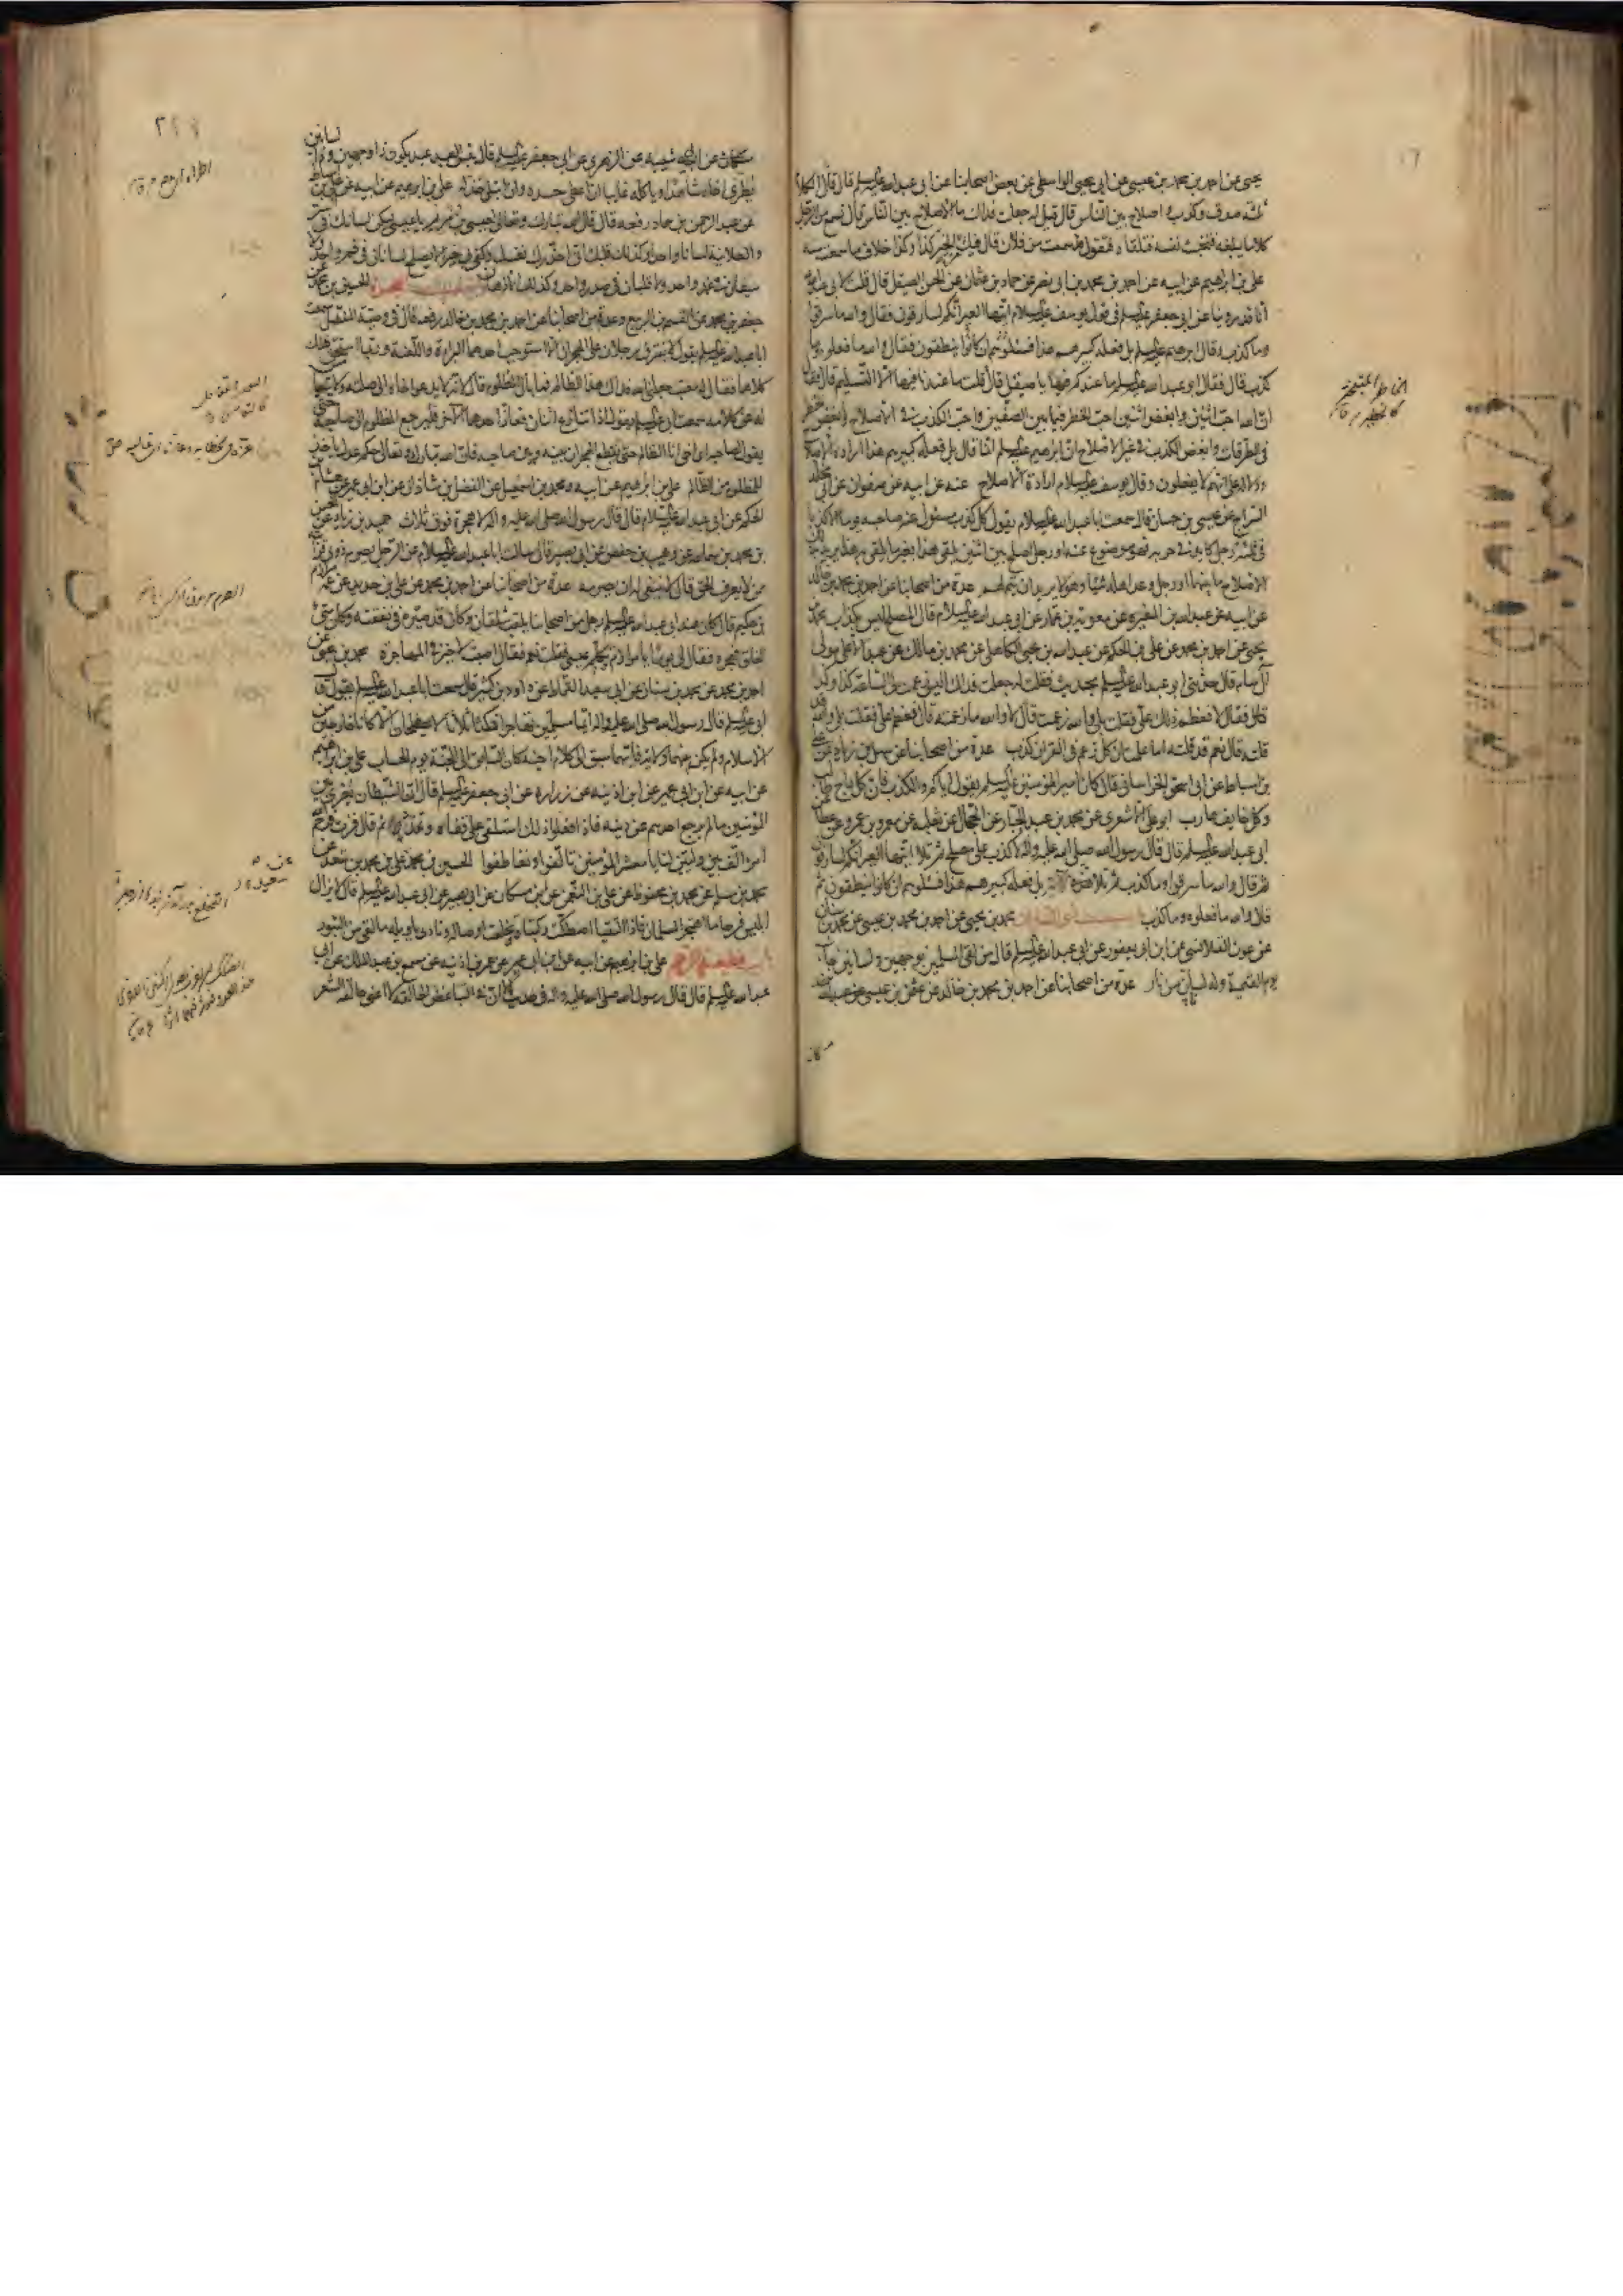 يحيى عن احمد بن محمد بن عيسى عن ابي يحيى الواسطي عن بعض اصحابنا عن ابي عبد الله عليه السلم قال قال الكلام
ثلثة صدق وكذب و اصلاح بين الناس قال قيل له جعلت فداك ما الاصلاح بين الناس قال تسمع من الرجل
كلاما يبلغه فتخبث نفسه فتلقاه فتقول سمعت من فلان قال فيك من الخير كذا وكذا خلاف ما سمعت منه
علي بن ابراهيم عن ابيه عن احمد بن محمد بن ابي نصر عن حماد بن عثمان عن الحسن الصيقل قال قلت لابي عبد الله
انا قد روينا عن ابي جعفر عليه السلم في قول يوسف عليه السلام ايتها العير انكم لسارقون فقال والله ما سرقوا
وما كذب وقال ابرهيم عليه السلم بل فعله كبيرهم هذا فسئلوهم ان كانوا ينطقون فقال والله ما فعلوا وما
كذب قال فقال ابو عبد الله عليه السلم ما عندكم فيها يا صيقل قال قلت ما عندنا فيها الا التسليم قال فقال
ان الله احب اثنين وابغض اثنين احب الخطر فيما بين الصفين واحب الكذب في الاصلاح وابغض الخطر
في الطرقات وابغض الكذب في غير الاصلاح ان ابرهيم عليه السلم انما قال بل فعله كبيرهم هذا ارادة الاصلاح
ودلالة على انهم لا يفعلون وقال يوسف عليه السلام ارادة الاصلاح عنه عن ابيه عن صفوان عن ابي مخلد
السراج عن عيسى بن حسان قال سمعت ابا عبد الله عليه السلام يقول كل كذب مسئول عنه صاحبه يوما الا كذبا
في ثلثة رجل كايد في حربه فهو موضوع عنه او رجل اصلح بين اثنين يلقى هذا بغير ما يلقى به هذا يريد بذلك
الاصلاح ما بينهما او رجل وعد اهله شيئا وهو لا يريد ان يتم لهم عدة من اصحابنا عن احمد بن محمد بن خالد
عن ابيه عن عبد الله بن المغيرة عن معوية بن عمار عن ابي عبد الله عليه السلام قال المصلح ليس بكذاب محمد بن
يحيى عن احمد بن محمد عن علي بن الحكم عن عبد الله بن يحيى الكاهلي عن محمد بن مالك عن عبد الاعلى مولى
آل سام قال حدثني ابو عبد الله عليه السلم بحديث فقلت له جعلت فداك اليس زعمت لي الساعة كذا وكذا
قال فقال لا فعظم ذلك علي فقلت بلى والله زعمت قال لا والله ما زعمته قال فعظم علي فقلت بلى والله قد
قلته قال نعم قد قلته اما علمت ان كل زعم في القران كذب عدة من اصحابنا عن سهل بن زياد عن علي
بن اسباط عن ابي اسحق الخراساني قال كان امير المؤمنين عليه السلم يقول اياكم والكذب فان كل راج طالب
وكل خايف هارب ابو علي الاشعري عن محمد بن عبد الجبار عن الحجال عن ثعلبة عن معمر بن عمرو عن عطا عن
ابي عبد الله عليه السلم قال قال رسول الله صلى الله عليه واله لا كذب على مصلح ثم تلا ايتها العير انكم لسارقون
ثم قال والله ما سرقوا وما كذب ثم تلا بل فعله كبيرهم هذا فسئلوهم ان كانوا ينطقون ثم
قال والله ما فعلوه وما كذب باب ذي اللسانين محمد بن يحيى عن احمد بن محمد بن عيسى عن محمد بن سنان
عن عون القلانسي عن ابن ابي يعفور عن ابي عبد الله عليه السلم قال من لقي المسلمين بوجهين ولسانين جاء
يوم القيمة وله لسانان من نار عدة من اصحابنا عن احمد بن محمد بن خالد عن عثمن بن عيسى عن عبد الله
٢٩٧
مسكان عن ابي شيبة عن الزهري عن ابي جعفر عليه السلم قال بئس العبد عبد يكون ذا وجهين وذا لسانين
يطري اخاه شاهدا وياكله غايبا ان اعطي حسده وان ابتلي خذله علي بن ابرهيم عن ابيه عن علي بن اسباط
عن عبد الرحمن بن حماد رفعه قال قال الله تبارك وتعالى لعيسى بن مريم يا عيسى ليكن لسانك في السر
والعلانية لسانا واحدا وكذلك قلبك اني احذرك نفسك وكفى بي خبيرا لا يصلح لسانان في فم واحد ولا
سيفان في غمد واحد ولا قلبان في صدر واحد وكذلك الاذهان باب الهجرة الحسين بن محمد عن
جعفر بن محمد عن القسم بن الربيع وعدة من اصحابنا عن احمد بن محمد بن خالد رفعه قال في وصية المفضل سمعت
ابا عبد الله عليه السلم يقول لا يفترق رجلان على الهجران الا استوجب احدهما البراءة واللعنة وربما استحق ذلك
كلاهما فقال له معتب جعلني الله فداك هذا الظالم فما بال المظلوم قال لانه لا يدعو اخاه الى صلته ولا يتغامس
له عن كلامه سمعت ابي عليه السلم يقول اذا تنازع اثنان فعاز احدهما الآخر فليرجع المظلوم الى صاحبه حتى
يقول لصاحبه اي اخي انا الظالم حتى يقطع الهجران بينه وبين صاحبه فان الله تبارك وتعالى حكم عدل ياخذ
للمظلوم من الظالم علي بن ابرهيم عن ابيه ومحمد بن اسمعيل عن الفضل بن شاذان عن ابن ابي عمير عن هشام بن
الحكم عن ابي عبد الله عليه السلام قال قال رسول الله صلى الله عليه واله لا هجرة فوق ثلاث حميد بن زياد عن الحسن
بن محمد بن سماعة عن وهيب بن حفص عن ابي بصير قال سالت ابا عبد الله عليه السلام عن الرجل يصرم ذوي قرابته
ممن لا يعرف الحق قال لا ينبغي له ان يصرمه عدة من اصحابنا عن احمد بن محمد عن علي بن حديد عن عمه مرازم
بن حكيم قال كان عند ابي عبد الله عليه السلم رجل من اصحابنا يلقب شلقان وكان قد صيره في نفقته وكان سيئ
الخلق فهجره فقال لي يوما يا مرازم تكلم عيسى فقلت نعم فقال اصبت لا خير في المهاجرة محمد بن يحيى عن
احمد بن محمد عن محمد بن سنان عن ابي سعيد القماط عن داود بن كثير قال سمعت ابا عبد الله عليه السلم يقول قال
ابي عليه السلم قال رسول الله صلى الله عليه واله ايما مسلمين تهاجرا فمكثا ثلاثا لا يصطلحان الا كانا خارجين من
الاسلام ولم يكن بينهما ولاية فايهما سبق الى كلام اخيه كان السابق الى الجنة يوم الحساب علي بن ابرهيم
عن ابيه عن ابن ابي عمير عن ابن اذينة عن زرارة عن ابي جعفر عليه السلم قال ان الشيطان يغري بين
المؤمنين ما لم يرجع احدهم عن دينه فاذا فعلوا ذلك استلقى على قفاه وتمدد ثم قال فزت فرحم الله
امرا الف بين وليين لنا يا معشر المؤمنين تالفوا وتعاطفوا الحسين بن محمد عن علي بن محمد بن سعد عن
محمد بن مسلم عن محمد بن محفوظ عن علي بن النعمان عن ابن مسكان عن ابي بصير عن ابي عبد الله عليه السلم قال لا يزال
ابليس فرحا ما اهتجر المسلمان فاذا التقيا اصطكت ركبتاه وتخلعت اوصاله ونادى يا ويله ما لقي من الثبور
باب قطيعة الرحم علي بن ابرهيم عن ابيه عن ابن ابي عمير عن عمر بن اذينة عن مسمع بن عبد الملك عن ابي
عبد الله عليه السلم قال قال رسول الله صلى الله عليه واله في حديث الا ان في التباغض الحالقة لا اعني حالقة الشعر